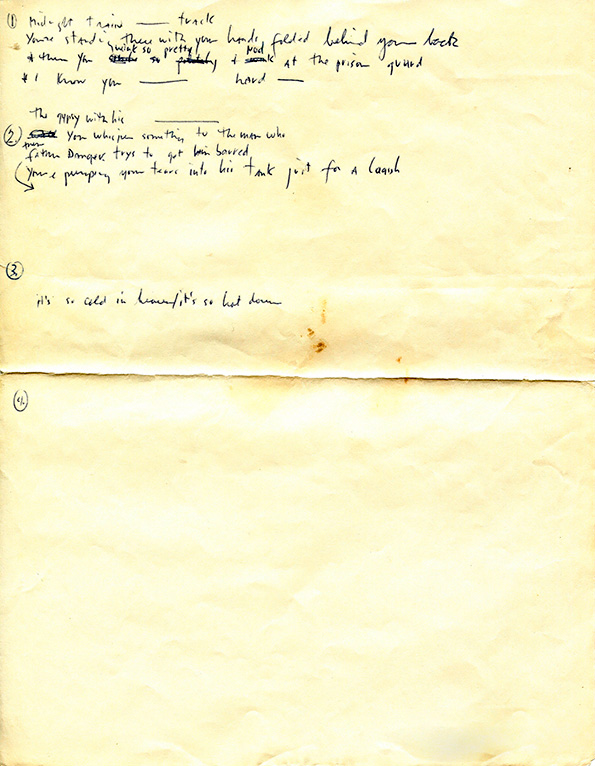 ① Midnight train ____ track
You're standing there with your hands folded behind your back
& then you wink so pretty & nod at the prison guard
& I know you ____ hard ____
The gypsy with his ____
② You whisper something to the man who
then father Danger trys to get him barred
You're pumping your tears into his tank just for a laugh
③
it's so cold in heaven/it's so hot down
④